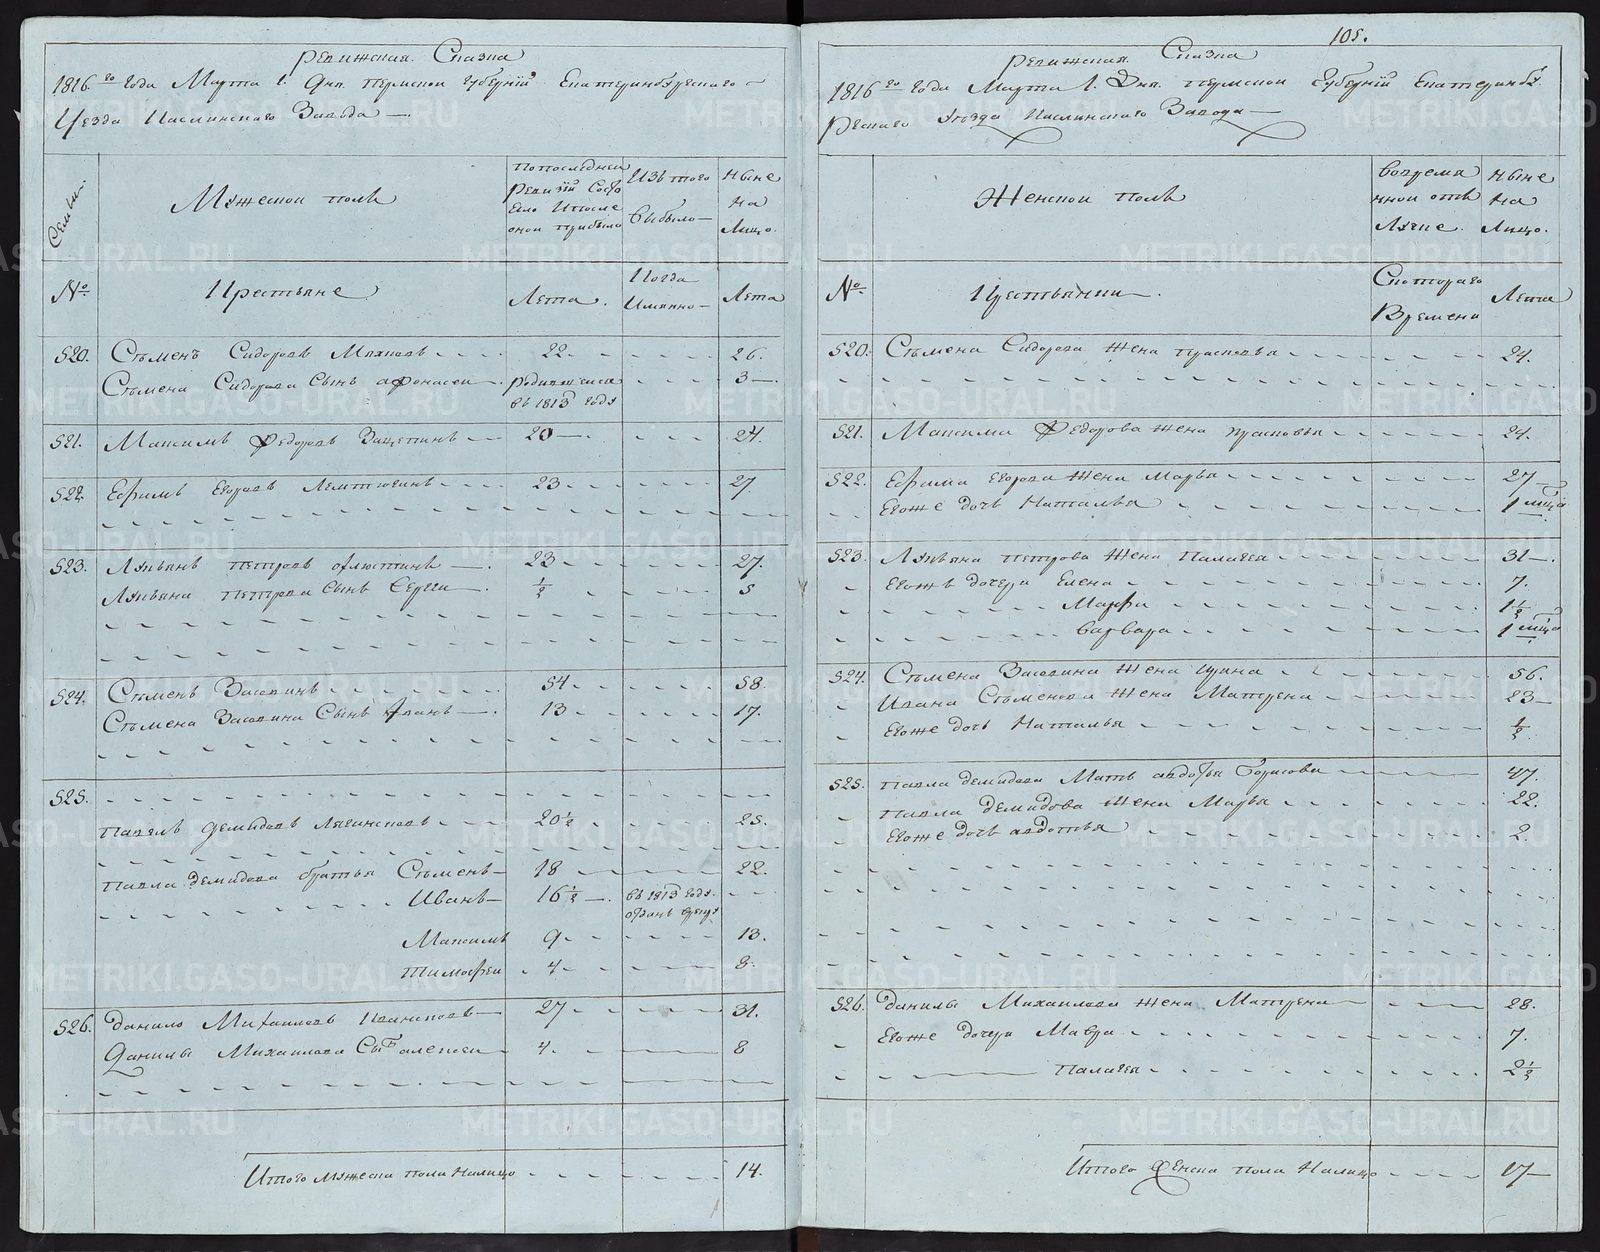 Ревижская Сказка
1816го Года Марта 1. Дня Пермской Губернии Екатеринбургского
Уезда Каслинского Завода
Семьи.
Мужеской полъ
По последней
Ревизии Состо
яло И после
оной прибыло
Изъ того
Выбыло
Ныне
На
Лицо.
№
Крестьяне
Лета.
Когда
Имянно
Лета
520. Стьменъ Сидоровъ 22 26.
Стьмена Сидорова Сынъ афонасеи родившеися 3
въ 1813 году
521. Максимъ Федоровъ Защепинъ 20 24.
522. Ефимъ Егоровъ 23 27
523. Лукьянъ петровъ 23 27.
Лукьяна петрова Сынъ Сергеи 1/2 5
524. Стьменъ 54 58.
Стьмена Сынъ Иванъ 13 17.
525.
Павелъ Демидовъ 20 1/2 25.
Павла Демидова братья Стьменъ 18 22.
Иванъ 16 1/2 въ 1813 году.
отданъ врекру
Максимъ 9 13.
Тимофеи 4 8.
526. Данило Михаиловъ 27 31.
Данилы Михаилова Сынъ алексеи 4. 8
Итого Мужеска пола Налицо 14.
105.
Ревижская Сказка
1816го Года Марта 1. Дня пермской Губернии Екатеринбу
ргскаго Уезда Каслинского Завода
Женской полъ
Вовремя
нной отъ
Лучке.
Ныне
На
Лицо.
№
Крестьянки
Скоторого
Времени
Лета
520. Стьмена Сидорова жена прасковья 24.
521. Максима Федорова жена прасковья 24.
522. Ефима Егорова жена Марья 27
Егоже дочь Наталья 1 мца
523. Лукьяна петрова жена Палагея 31
Егожъ дочери Елена 7.
Марфа 1 1/2
Варвара 1 мца
524. Стьмена жена ирина 56.
Ивана Стьменова жена Матрена 23
Егоже дочь Наталья 1/2
525. Павла демидова Мать авдотья Борисова 47.
Павла Демидова жена Марья 22.
Егоже дочь авдотья 2.
526. Данилы Михаилова жена Матрена 28.
Егоже дочери Мавра 7.
Палагея 2 1/2
Итого женска пола Налицо 17
METRIKI.GASO-URAL.RU